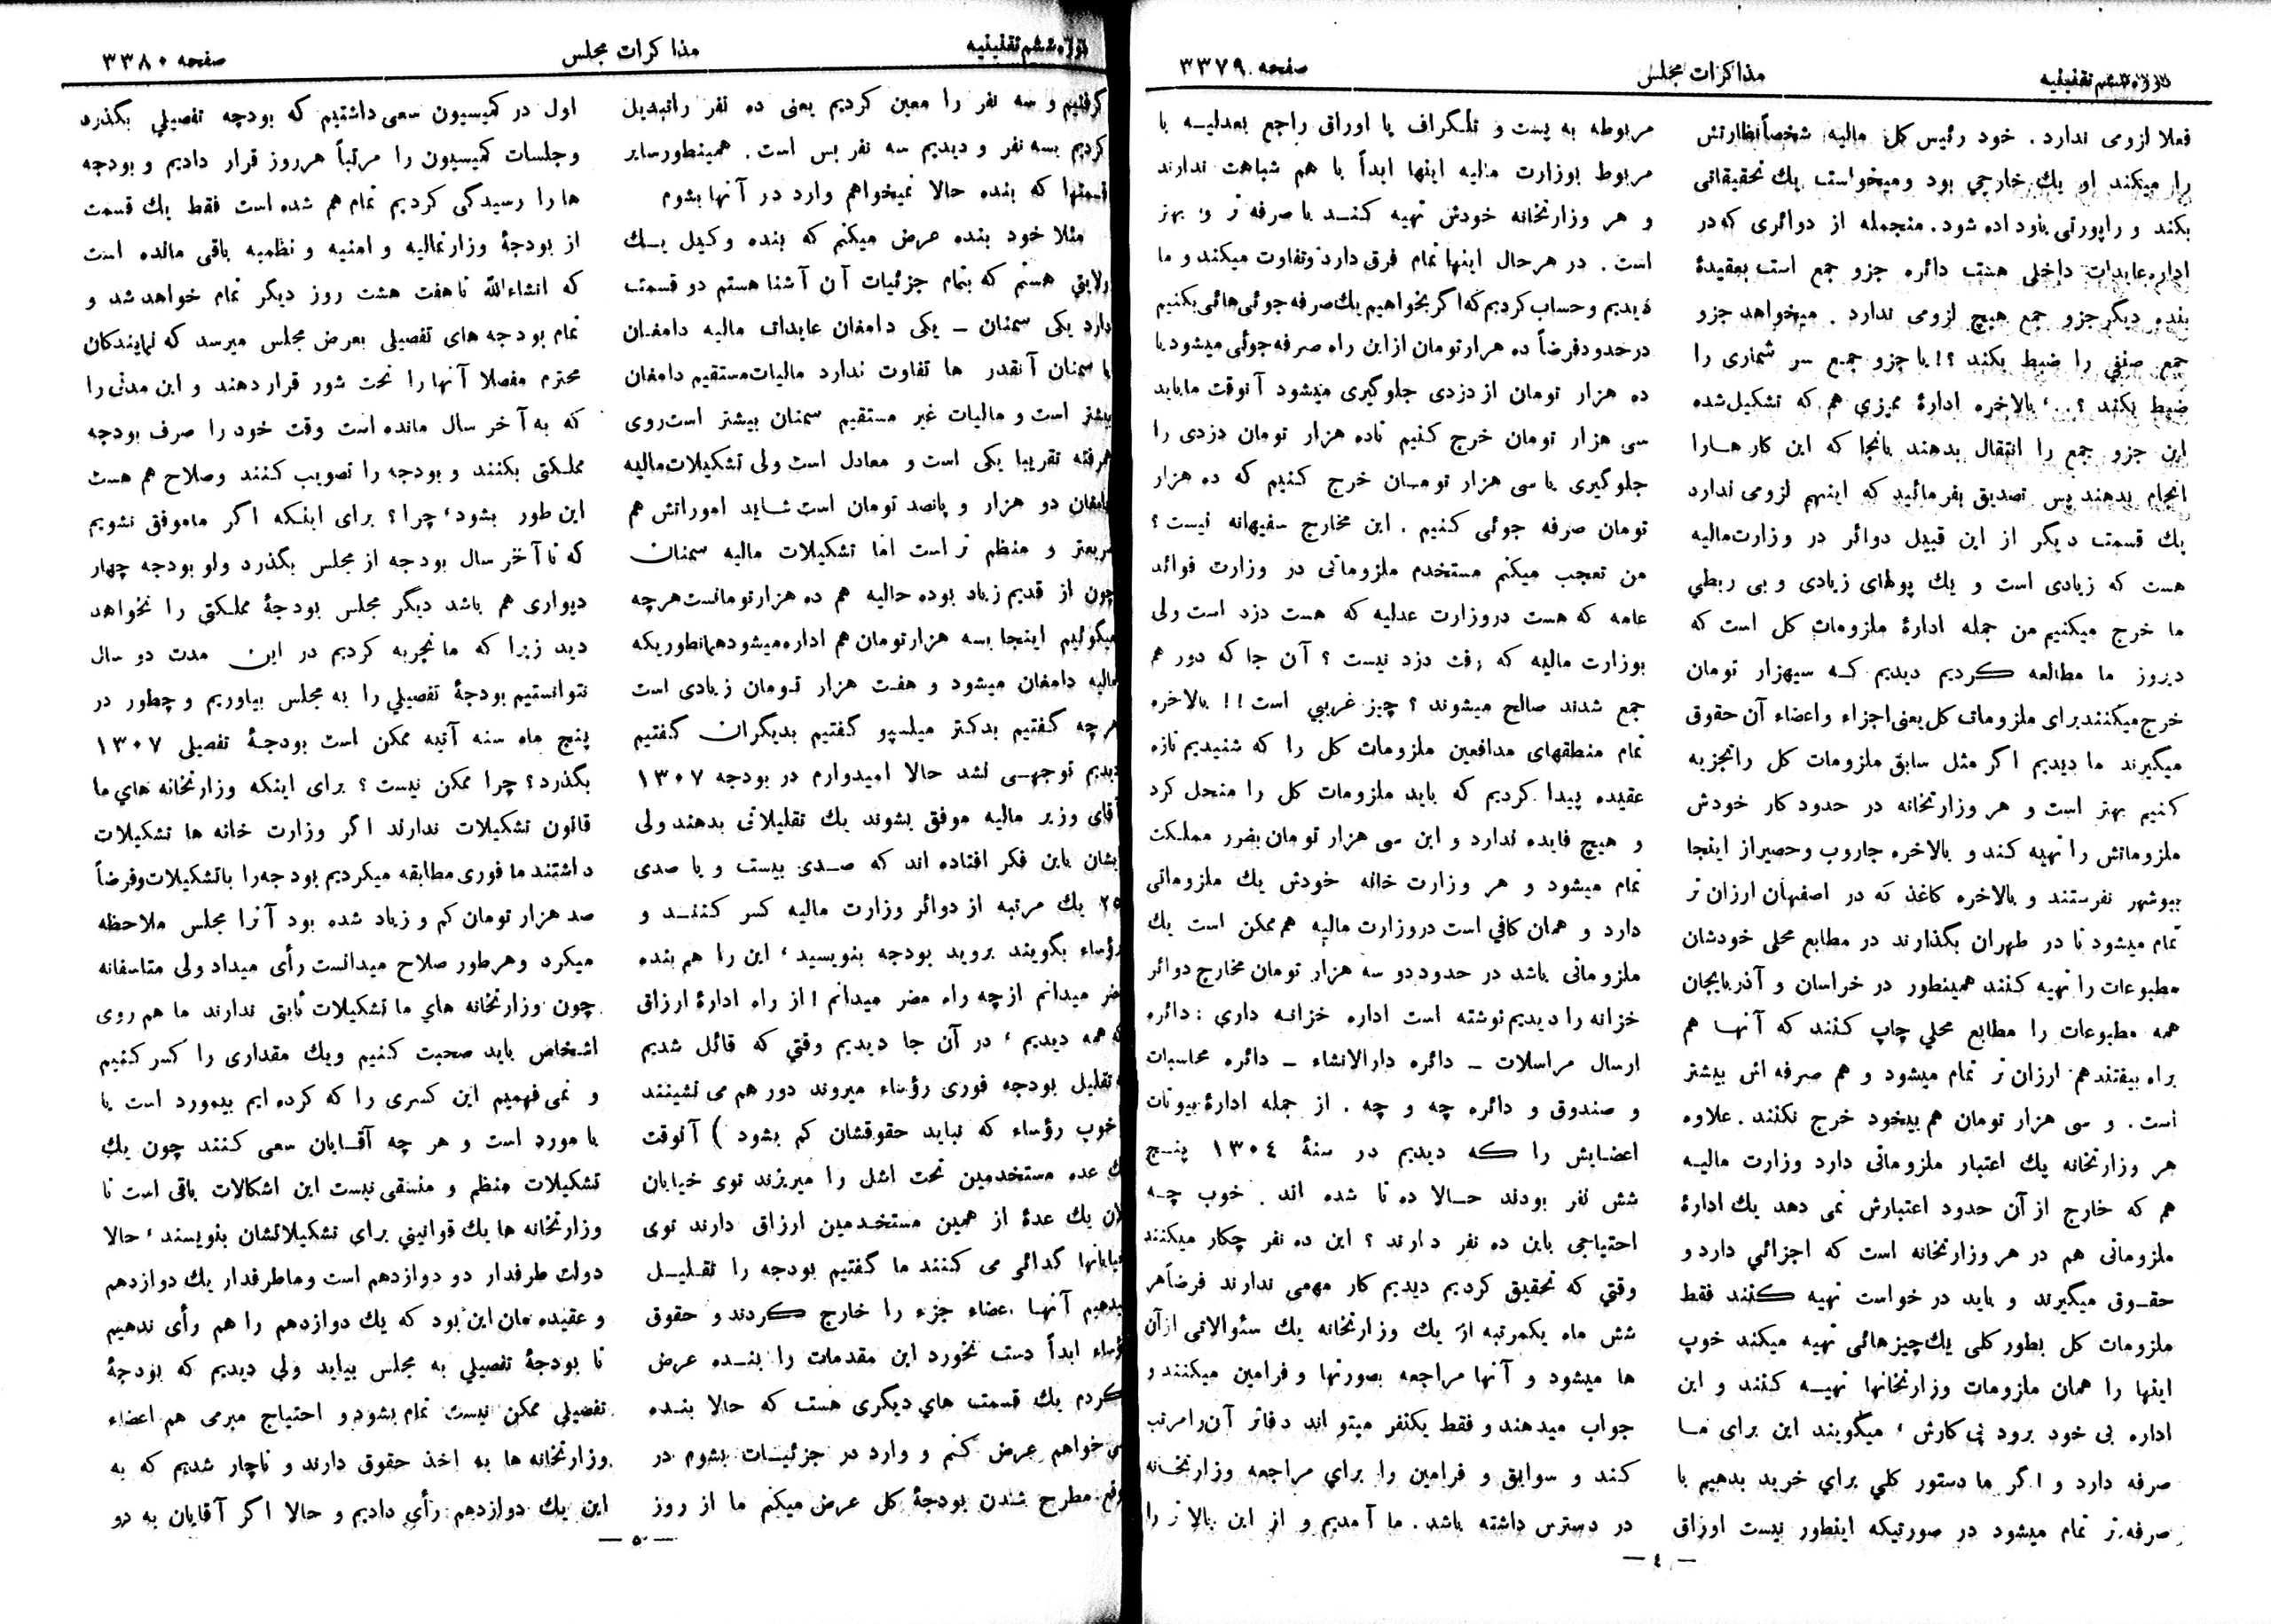 دوره ششم تقنینیه
مذاکرات مجلس
صفحه ۳۳۷۹
فعلا لزومی ندارد . خود رئیس کل مالیه شخصاً نظارتش
را میکند او یك خارجی بود ومیخواست یك تحقیقاتی
بکند و راپورتی باو داده شود . منجمله از دوائری که در
اداره عایدات داخلی هست دائره جزو جمع است بعقیدهٔ
بنده دیگر جزو جمع هیچ لزومی ندارد . میخواهد جزو
جمع صنفی را ضبط بکند ؟! یا جزو جمع سر شماری را
ضبط بکند ؟ .. ، بالاخره ادارهٔ ممیزی هم که تشکیل شده
این جزو جمع را انتقال بدهند بانجا که این کار هارا
انجام بدهند پس تصدیق بفرمائید که اینهم لزومی ندارد
یك قسمت دیگر از این قبیل دوائر در وزارت مالیه
هست که زیادی است و یك پولهای زیادی و بی ربطی
ما خرج میکنیم من جمله ادارهٔ ملزومات کل است که
دیروز ما مطالعه کردیم دیدیم که سیهزار تومان
خرج میکنند برای ملزومات کل یعنی اجزاء واعضاء آن حقوق
میگیرند ما دیدیم اگر مثل سابق ملزومات کل را تجزیه
کنیم بهتر است و هر وزارتخانه در حدود کار خودش
ملزوماتش را تهیه کند و بالاخره جاروب وحصیر از اینجا
ببوشهر نفرستند و بالاخره کاغذ که در اصفهان ارزان تر
تمام میشود تا در طهران بگذارند در مطابع محلی خودشان
مطبوعات را تهیه کنند همینطور در خراسان و آذربایجان
همه مطبوعات را مطابع محلی چاپ کنند که آنها هم
براه بیفتند هم ارزان تر تمام میشود و هم صرفه اش بیشتر
است . و سی هزار تومان هم بیخود خرج نکنند . علاوه
هر وزارتخانه یك اعتبار ملزوماتی دارد وزارت مالیه
هم که خارج از آن حدود اعتبارش نمی دهد یك ادارهٔ
ملزوماتی هم در هر وزارتخانه است که اجزائی دارد و
حقوق میگیرند و باید در خواست تهیه کنند فقط
ملزومات کل بطور کلی یك چیز هائی تهیه میکند خوب
اینها را همان ملزومات وزارتخانها تهیه کنند و این
اداره بی خود برود پی کارش ، میگویند این برای ما
صرفه دارد و اگر ما دستور کلی برای خرید بدهیم با
صرفه تر تمام میشود در صورتیکه اینطور نیست اوراق
مربوطه به پست و تلگراف یا اوراق راجع بعدلیه یا
مربوط بوزارت مالیه اینها ابداً با هم شباهت ندارند
و هر وزارتخانه خودش تهیه کند با صرفه تر و بهتر
است . در هرحال اینها تمام فرق دارد وتفاوت میکند و ما
دیدیم وحساب کردیم که اگر بخواهیم یك صرفه جوئی هائی بکنیم
در حدود فرضاً ده هزار تومان از این راه صرفه جوئی میشود یا
ده هزار تومان از دزدی جلوگیری میشود آنوقت ما باید
سی هزار تومان خرج کنیم تا ده هزار تومان دزدی را
جلوگیری یا سی هزار تومان خرج کنیم که ده هزار
تومان صرفه جوئی کنیم . این مخارج سفیهانه نیست ؟
من تعجب میکنم مستخدم ملزوماتی در وزارت فوائد
عامه که هست در وزارت عدلیه که هست دزد است ولی
بوزارت مالیه که رفت دزد نیست ؟ آن جا که دور هم
جمع شدند صالح میشوند ؟ چیز غریبی است !! بالاخره
تمام منطقهای مدافعین ملزومات کل را که شنیدیم تازه
عقیده پیدا کردیم که باید ملزومات کل را منحل کرد
و هیچ فایده ندارد و این سی هزار تومان بضرر مملکت
تمام میشود و هر وزارت خانه خودش یك ملزوماتی
دارد و همان کافی است در وزارت مالیه هم ممکن است یك
ملزوماتی باشد در حدود دو سه هزار تومان مخارج دوائر
خزانه را دیدیم نوشته است اداره خزانه داری : دائره
ارسال مراسلات ـ دائره دارالانشاء ـ دائره محاسبات
و صندوق و دائره چه و چه . از جمله ادارهٔ بیوتات
اعضایش را که دیدیم در سنهٔ ۱۳۰٤ پنج
شش نفر بودند حالا ده تا شده اند . خوب چه
احتیاجی باین ده نفر دارند ؟ این ده نفر چکار میکنند
وقتی که تحقیق کردیم دیدیم کار مهمی ندارند فرضاً هر
شش ماه یکمرتبه از یك وزارتخانه یك سئوالاتی از آن
ها میشود و آنها مراجعه بصورتها و فرامین میکنند و
جواب میدهند و فقط یکنفر میتواند دفاتر آن را مرتب
کند و سوابق و فرامین را برای مراجعه وزارتخانه
در دسترس داشته باشد . ما آمدیم و از این بالاتر را
— ٤ —
دوره ششم تقنینیه
مذاکرات مجلس
صفحه ۳۳۸۰
گرفتیم و سه نفر را معین کردیم یعنی ده نفر را تبدیل
کردیم بسه نفر و دیدیم سه نفر بس است . همینطور سایر
قسمتها که بنده حالا نمیخواهم وارد در آنها بشوم
مثلا خود بنده عرض میکنم که بنده وکیل یك
ولایتی هستم که بتمام جزئیات آن آشنا هستم دو قسمت
دارد یکی سمنان ـ یکی دامغان عایدات مالیه دامغان
با سمنان آنقدر ها تفاوت ندارد مالیات مستقیم دامغان
بیشتر است و مالیات غیر مستقیم سمنان بیشتر است روی
همرفته تقریبا یکی است و معادل است ولی تشکیلات مالیه
دامغان دو هزار و پانصد تومان است شاید اموراتش هم
سریعتر و منظم تر است اما تشکیلات مالیه سمنان
چون از قدیم زیاد بوده حالیه هم ده هزار تومانست هرچه
میگوئیم اینجا بسه هزار تومان هم اداره میشود همانطوریکه
مالیه دامغان میشود و هفت هزار تومان زیادی است
هرچه گفتیم بدکتر میلسپو گفتیم بدیگران گفتیم
دیدیم توجهی نشد حالا امیدوارم در بودجه ۱۳۰۷
آقای وزیر مالیه موفق بشوند یك تقلیلاتی بدهند ولی
ایشان باین فکر افتاده اند که صدی بیست و یا صدی
۲۵ یك مرتبه از دوائر وزارت مالیه کسر کنند و
رؤساء بگویند بروید بودجه بنویسید ، این را هم بنده
مضر میدانم از چه راه مضر میدانم ؟ از راه ادارهٔ ارزاق
که همه دیدیم ، در آن جا دیدیم وقتی که قائل شدیم
به تقلیل بودجه فوری رؤساء میروند دور هم می نشینند
(خوب رؤساء که نباید حقوقشان کم بشود ) آنوقت
یك عده مستخدمین تحت اشل را میریزند توی خیابان
الان یك عدهٔ از همین مستخدمین ارزاق دارند توی
خیابانها گدائی می کنند ما گفتیم بودجه را تقلیل
بدهیم آنها اعضاء جزء را خارج کردند و حقوق
رؤساء ابداً دست نخورد این مقدمات را بنده عرض
کردم یك قسمت های دیگری هست که حالا بنده
نمی خواهم عرض کنم و وارد در جزئیات بشوم در
موقع مطرح شدن بودجهٔ کل عرض میکنم ما از روز
اول در کمیسیون سعی داشتیم که بودجه تفصیلی بگذرد
وجلسات کمیسیون را مرتباً هر روز قرار دادیم و بودجه
ها را رسیدگی کردیم تمام هم شده است فقط یك قسمت
از بودجهٔ وزارتمالیه و امنیه و نظمیه باقی مانده است
که انشاءالله تا هفت هشت روز دیگر تمام خواهد شد و
تمام بودجه های تفصیلی بعرض مجلس میرسد که نمایندکان
محترم مفصلا آنها را تحت شور قرار دهند و این مدتی را
که به آخر سال مانده است وقت خود را صرف بودجه
مملکتی بکنند و بودجه را تصویب کنند وصلاح هم هست
این طور بشود ، چرا ؟ برای اینکه اگر ما موفق نشویم
که تا آخر سال بودجه از مجلس بگذرد ولو بودجه چهار
دیواری هم باشد دیگر مجلس بودجهٔ مملکتی را نخواهد
دید زیرا که ما تجربه کردیم در این مدت دو سال
نتوانستیم بودجهٔ تفصیلی را به مجلس بیاوریم و چطور در
پنج ماه سنه آتیه ممکن است بودجهٔ تفصیلی ۱۳۰۷
بگذرد ؟ چرا ممکن نیست ؟ برای اینکه وزارتخانه های ما
قانون تشکیلات ندارند اگر وزارت خانه ها تشکیلات
داشتند ما فوری مطابقه میکردیم بودجه را با تشکیلات وفرضاً
صد هزار تومان کم و زیاد شده بود آنرا مجلس ملاحظه
میکرد وهرطور صلاح میدانست رأی میداد ولی متاسفانه
چون وزارتخانه های ما تشکیلات ثابتی ندارند ما هم روی
اشخاص باید صحبت کنیم ویك مقداری را کسر کنیم
و نمی فهمیم این کسری را که کرده ایم بیمورد است یا
با مورد است و هر چه آقایان سعی کنند چون یك
تشکیلات منظم و متسقی نیست این اشکالات باقی است تا
وزارتخانه ها یك قوانینی برای تشکیلاتشان بنویسند ، حالا
دولت طرفدار دو دوازدهم است وما طرفدار یك دوازدهم
و عقیده مان این بود که یك دوازدهم را هم رأی ندهیم
تا بودجهٔ تفصیلی به مجلس بیاید ولی دیدیم که بودجهٔ
تفصیلی ممکن نیست تمام بشود و احتیاج مبرمی هم اعضاء
وزارتخانه ها به اخذ حقوق دارند و ناچار شدیم که به
این یك دوازدهم رأی دادیم و حالا اگر آقایان به دو
— ۵ —